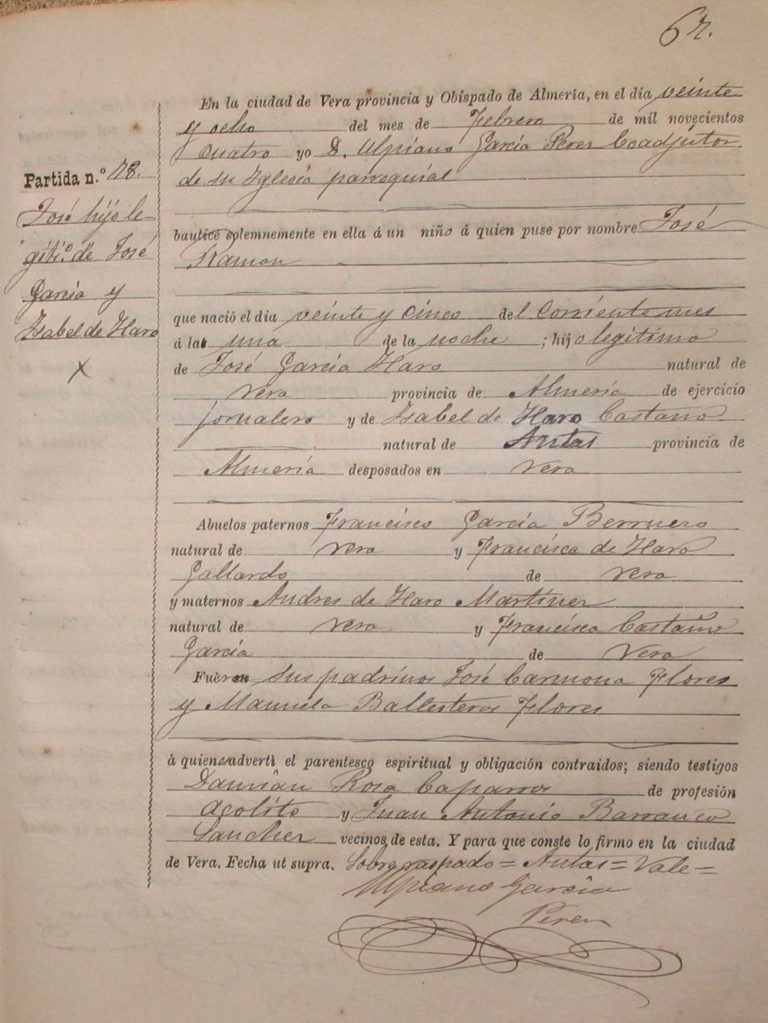 67.
En la ciudad de Vera provincia y Obispado de Almería, en el día veinte
y ocho del mes de Febrero de mil novecientos
cuatro yo D. Ulpiano García Perez Coadjutor
de su Iglesia parroquial
bauticé solemnemente en ella á un niño á quien puse por nombre José
Ramon
que nació el día veinte y cinco del corriente mes
á la una de la noche ; hijo legitimo
de José García Haro natural de
Vera provincia de Almería de ejercicio
jornalero y de Isabel de Haro Castaño
natural de Antas provincia de
Almería desposados en Vera
Abuelos paternos Francisco García Berruezo
natural de Vera y Francisca de Haro
Gallardo de Vera
y maternos Andres de Haro Martinez
natural de Vera y Francisca Castaño
García de Vera
Fueron sus padrinos José Carmona Flores
y Manuela Ballesteros Flores
à quienes advertì el parentesco espiritual y obligación contraidos; siendo testigos
Damián Rosa Caparros de profesión
acolito y Juan Antonio Barranco
Sanchez vecinos de esta. Y para que conste lo firmo en la ciudad
de Vera. Fecha ut supra. Sobreraspado = Antas = Vale =
Ulpiano García
Perez
Partida n.º 78.
José hijo le-
giti.º de José
García y
Isabel de Haro
x